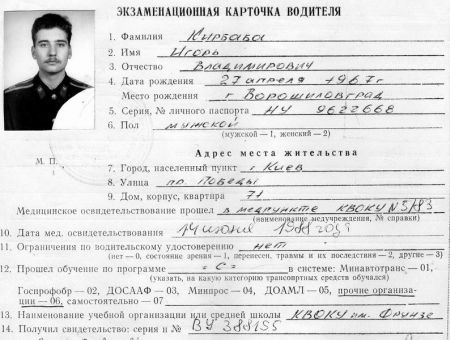 ЭКЗАМЕНАЦИОННАЯ КАРТОЧКА ВОДИТЕЛЯ
1. Фамилия Кирбаба
2. Имя Игорь
3. Отчество Владимирович
4. Дата рождения 27 апреля 1967г
Место рождения г Ворошиловград
5. Серия, № личного паспорта НУ 9622668
6. Пол мужской
(мужской — 1, женский — 2)
М. П.
Адрес места жительства
7. Город, населенный пункт г Киев
8. Улица пр. Победы
9. Дом, корпус, квартира 71
Медицинское освидетельствование прошел в медпункте КВОКУ N 5/83
(наименование медучреждения, № справки)
10. Дата мед. освидетельствования 14 июня 1988 года
11. Ограничения по водительскому удостоверению нет
(нет — 0, состояние зрения — 1, перенесен. травмы и их последствия — 2, другие — 3)
12. Прошел обучение по программе „С“ в системе: Минавтотранс — 01,
(указать, на какую категорию транспортных средств обучался)
Госпрофобр — 02, ДОСААФ — 03, Минпрос — 04, ДОАМЛ — 05, прочие организа-
ции — 06, самостоятельно — 07
13. Наименование учебной организации или средней школы КВОКУ им. Фрунзе
14. Получил свидетельство: серия и № ВУ 388155